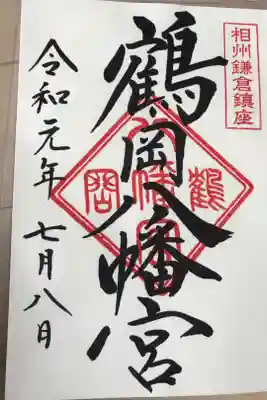 相州鎌倉鎮座
鶴岡八幡宮
鶴岡八幡宮
令和元年 七月八日